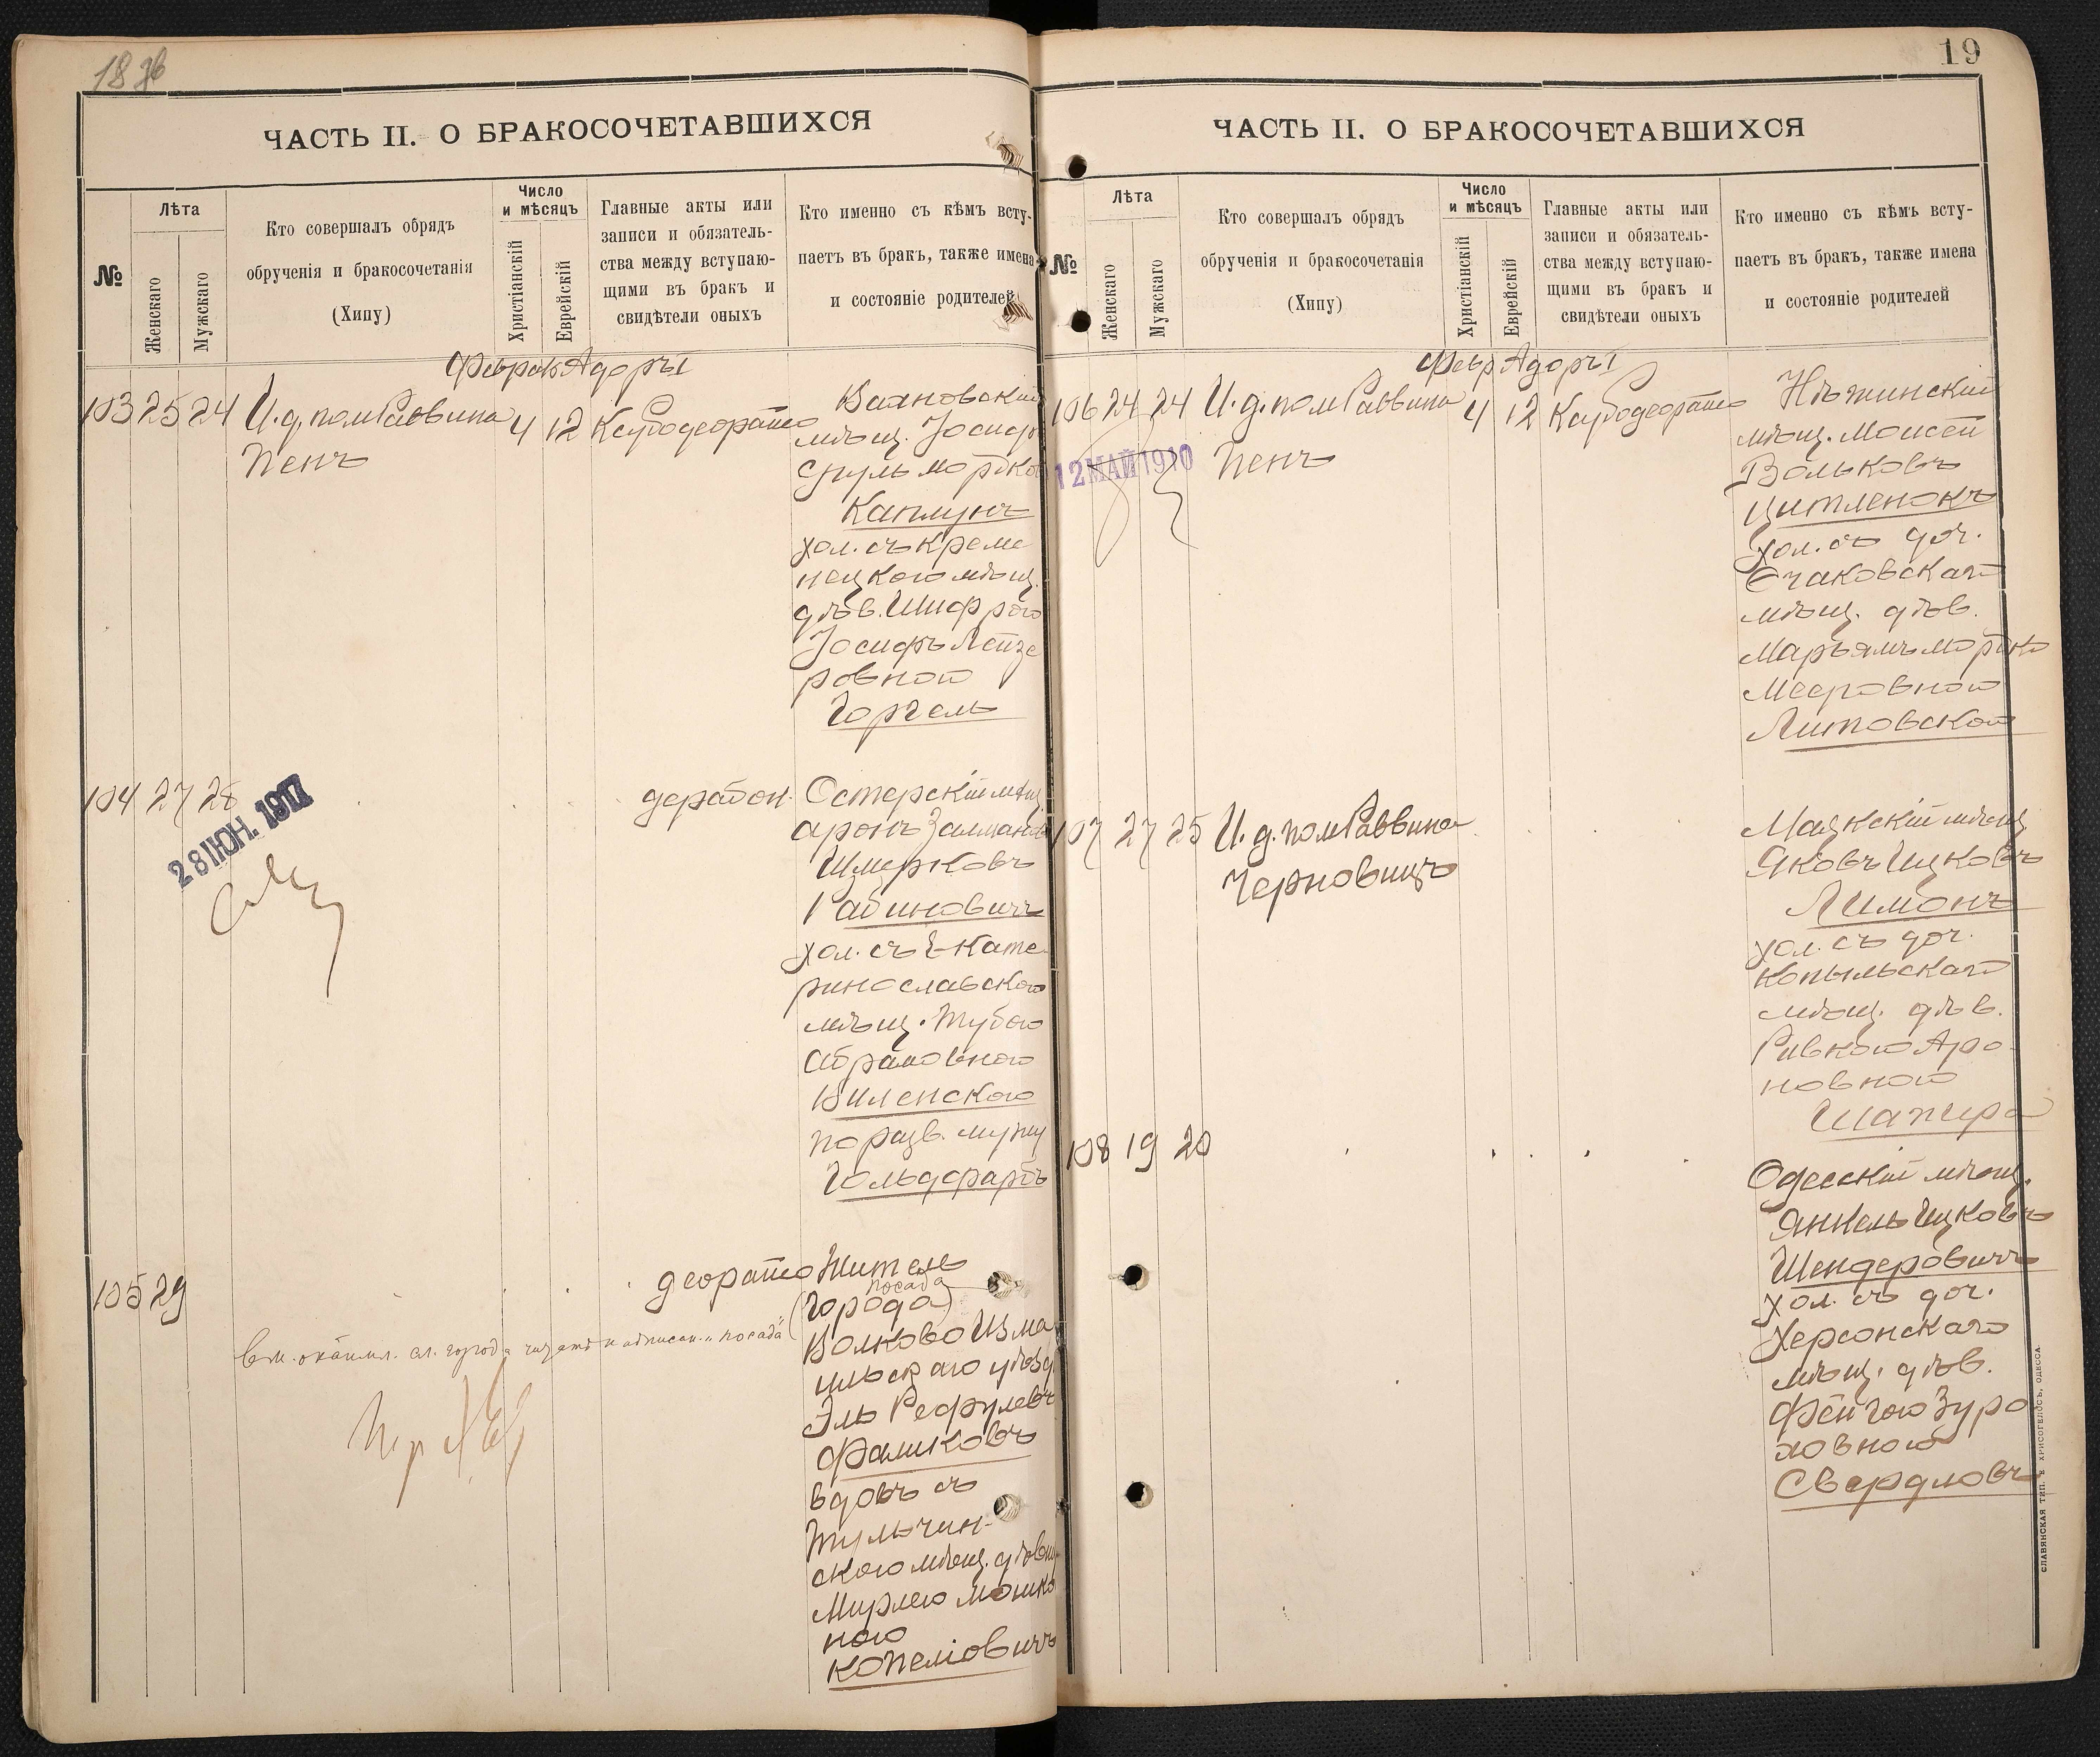 18 об
ЧАСТЬ II. О БРАКОСОЧЕТАВШИХСЯ
№
Лѣта
Женскаго
Мужскаго
Кто совершалъ обрядъ
обрученія и бракосочетанія
(Хипу)
Число
и мѣсяцъ
Христіанскій
Еврейскій
Главные акты или
записи и обязатель-
ства между вступаю-
щими въ бракъ и
свидѣтели оныхъ
Кто именно съ кѣмъ всту-
паетъ въ бракъ, также имена
и состояніе родителей
Февраль Адоръ I
103 25 24 И. д. пом Раввина 4 12
Пенъ
мѣщ. Іосифъ
Сруль Мордков
Каплунъ
хол. съ Креме
нецкою мѣщ.
дѣв. Шифрою
Іосифъ Лейзе
ровною
Горгель
104 27 28
28 ІЮН. 1917
Остерскій мѣщ.
Аронъ Залман
Шмерковъ
Рабиновичъ
хол. съ Екате
ринославскою
мѣщ. Тубою
Абрамовною
Виленскою
по разв. мужу
Гольдфарбъ
105 29
Житель
посада
(города)
Волково Изма
ильскаго уѣзд
Эль Рефулевъ
Фалиховъ
вдовъ съ
Тульчин-
скою мѣщ. дѣв
Мирлею Мошко
ною
Копеліовичъ
вм. окаймл. сл. города читать надписан. "посада"
19
ЧАСТЬ II. О БРАКОСОЧЕТАВШИХСЯ
№
Лѣта
Женскаго
Мужскаго
Кто совершалъ обрядъ
обрученія и бракосочетанія
(Хипу)
Число
и мѣсяцъ
Христіанскій
Еврейскій
Главные акты или
записи и обязатель-
ства между вступаю-
щими въ бракъ и
свидѣтели оныхъ
Кто именно съ кѣмъ всту-
паетъ въ бракъ, также имена
и состояніе родителей
Февр Адоръ I
106 24 24 И. д. пом Раввина 4 12
Пенъ
12 МАЙ 1910
Нѣжинскій
мѣщ. Моисей
Вольковъ
Цитленокъ
хол. съ доч.
Очаковскаго
мѣщ. дѣв.
Марьямъ Мордко
Мееровною
Литовскою
107 27 25 И. д. пом Раввина
Черновицъ
мѣщ
Яковъ Ицковъ
Лимонъ
хол. съ доч.
Копыльскаго
мѣщ. дѣв.
Ривкою Аро
новною
Шапиро
108 19 20
Одесскій мѣщ.
Янкель Ицковъ
Шендеровичъ
хол. съ доч.
Херсонскаго
мѣщ. дѣв.
Фейгою Зуро
ховною
Свердловъ
СЛАВЯНСКАЯ ТИП. Е ХРИСОГЕЛОСЪ, ОДЕССА